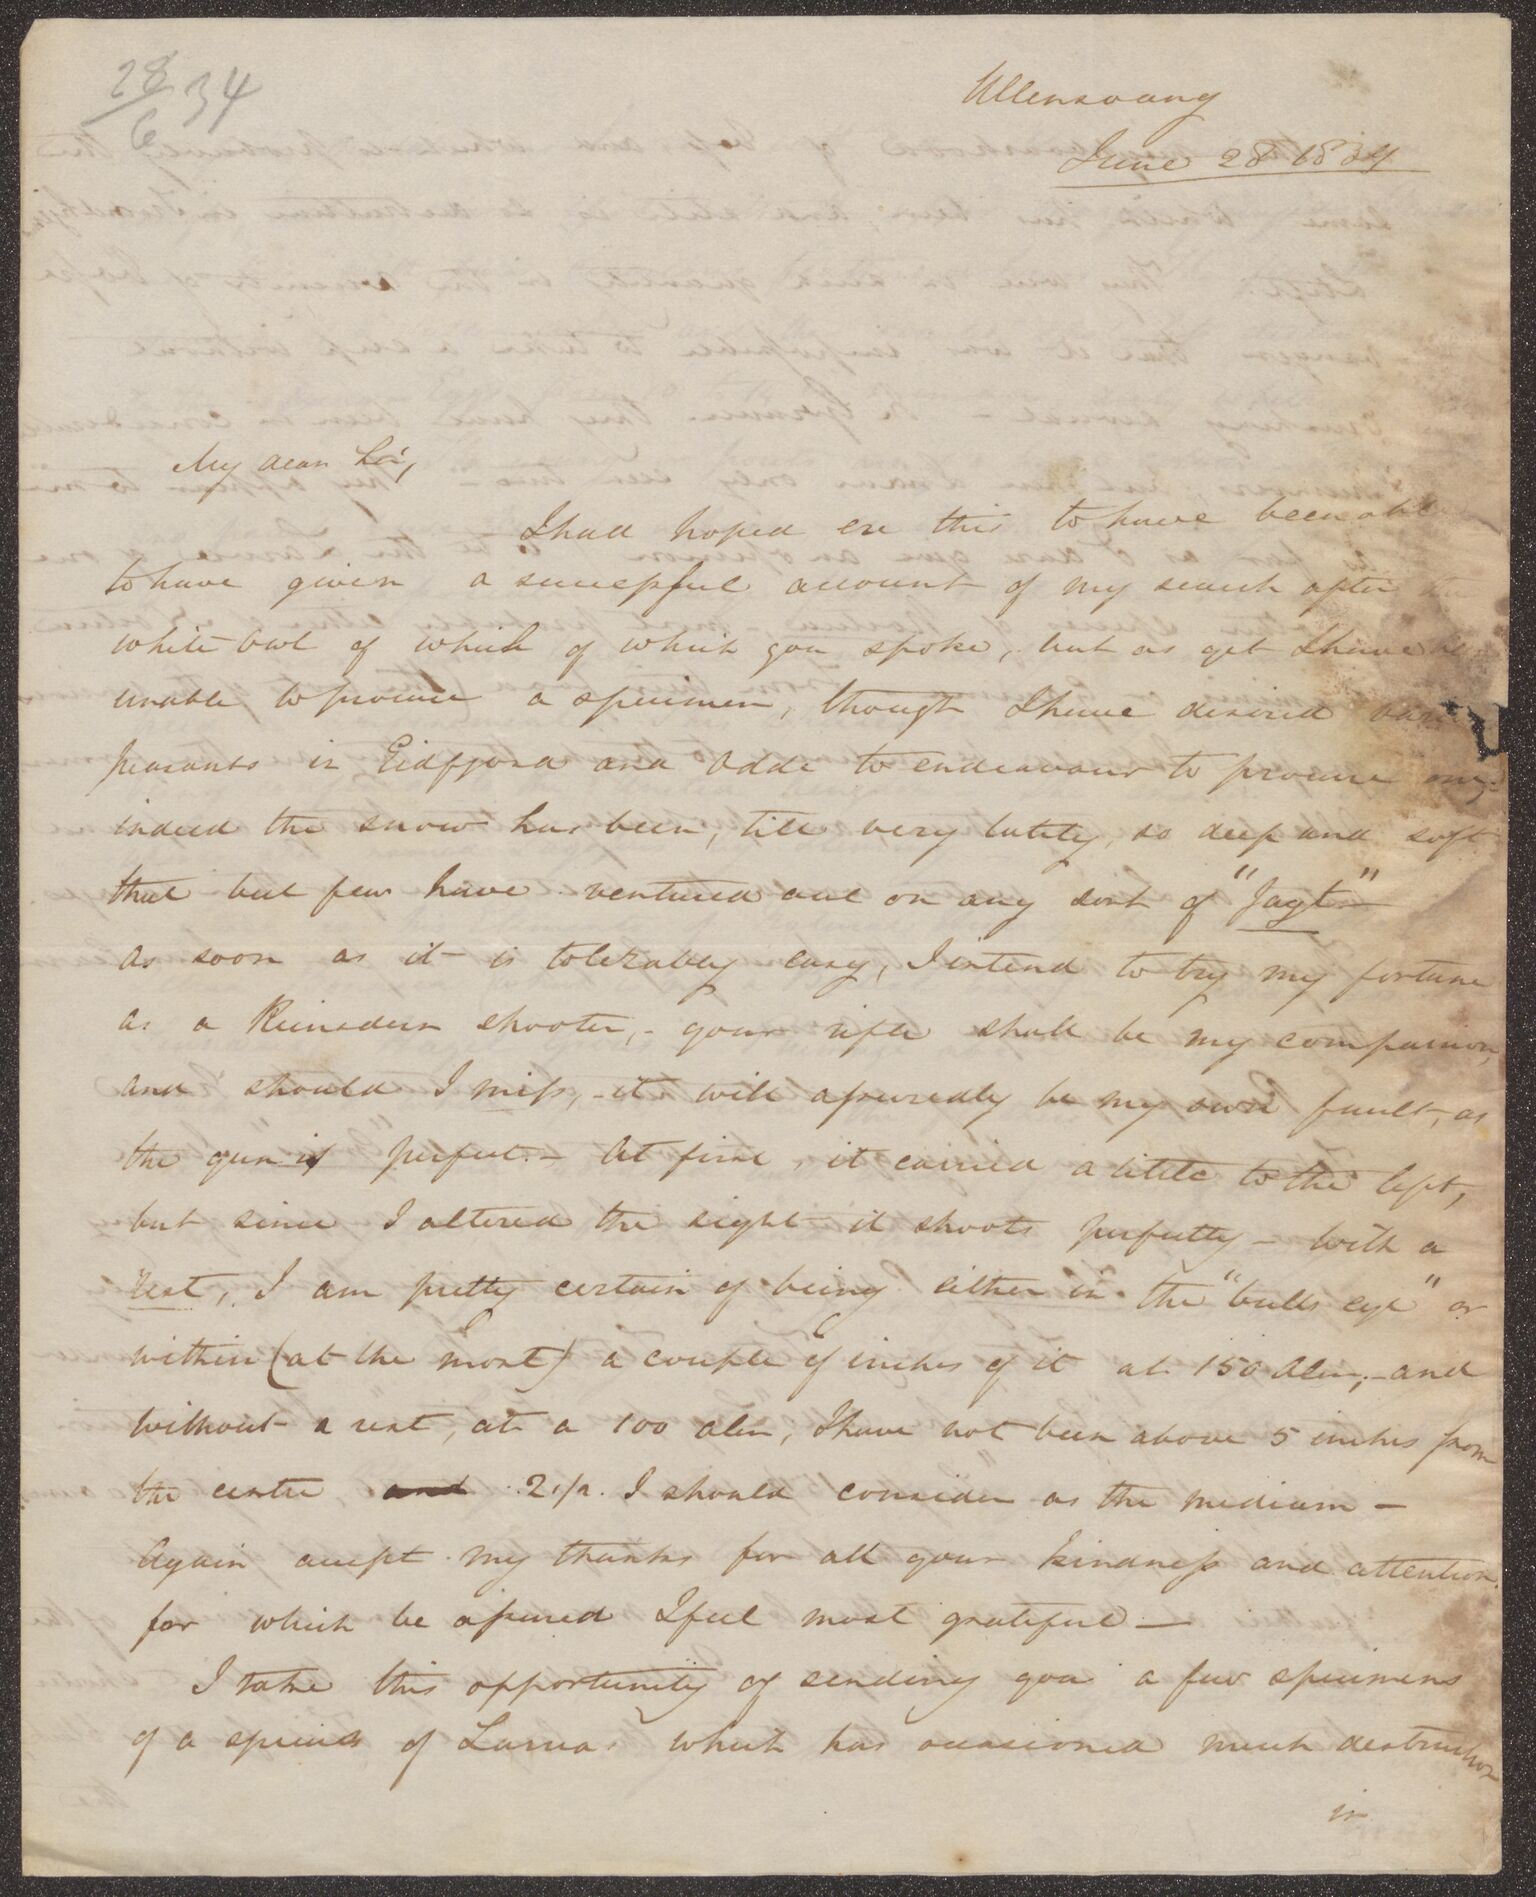 28/6 34
Ullensvang
June 28 1834
My dear Sir,
I had hoped ere this to have been able
to have given a successful account of my search after the
white owl of which of which you spoke, but as yet I have be
unable to procure a specimen, though I have desired vari
peasants in Eidfjord and Odde to endeavour to procure one;
indeed the snow has been, till very lately, so deep and soft
that but few have ventured out on any sort of "Jagt" —
As soon as it is tolerably easy, I intend to try my fortune
as a Reinsdeer shooter, – your rifle shall be my companion,
and should I miss, – it will assuredly be my own fault, as
the gun is perfect. – At first, it carried a little to the left,
but since I altered the sight it shoots perfectly – With a
rest, I am pretty certain of being either in the "bulls eye" or
within (at the most) a couple of inches of it at 150 Alen; – and
without a rest, at a 100 alen, I have not been above 5 inches from
the centre and 2 1/2 I should consider as the medium –
Again accept my thanks for all your kindness and attention
for which be assured I feel most grateful —
I take this opportunity of sending you a few specimens
of a species of Larva which has occasioned much destruction
in